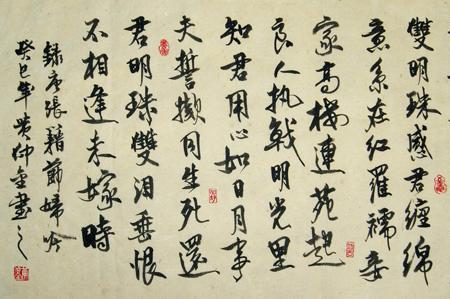 雙明珠感君纏綿
意系在紅羅襦妾
家高樓連苑起
良人執戟明光里
知君用心如日月事
夫誓擬同生死還
君明珠雙泪垂恨
不相逢未嫁時
錄唐張籍節婦吟
癸巳年黄仲金書之